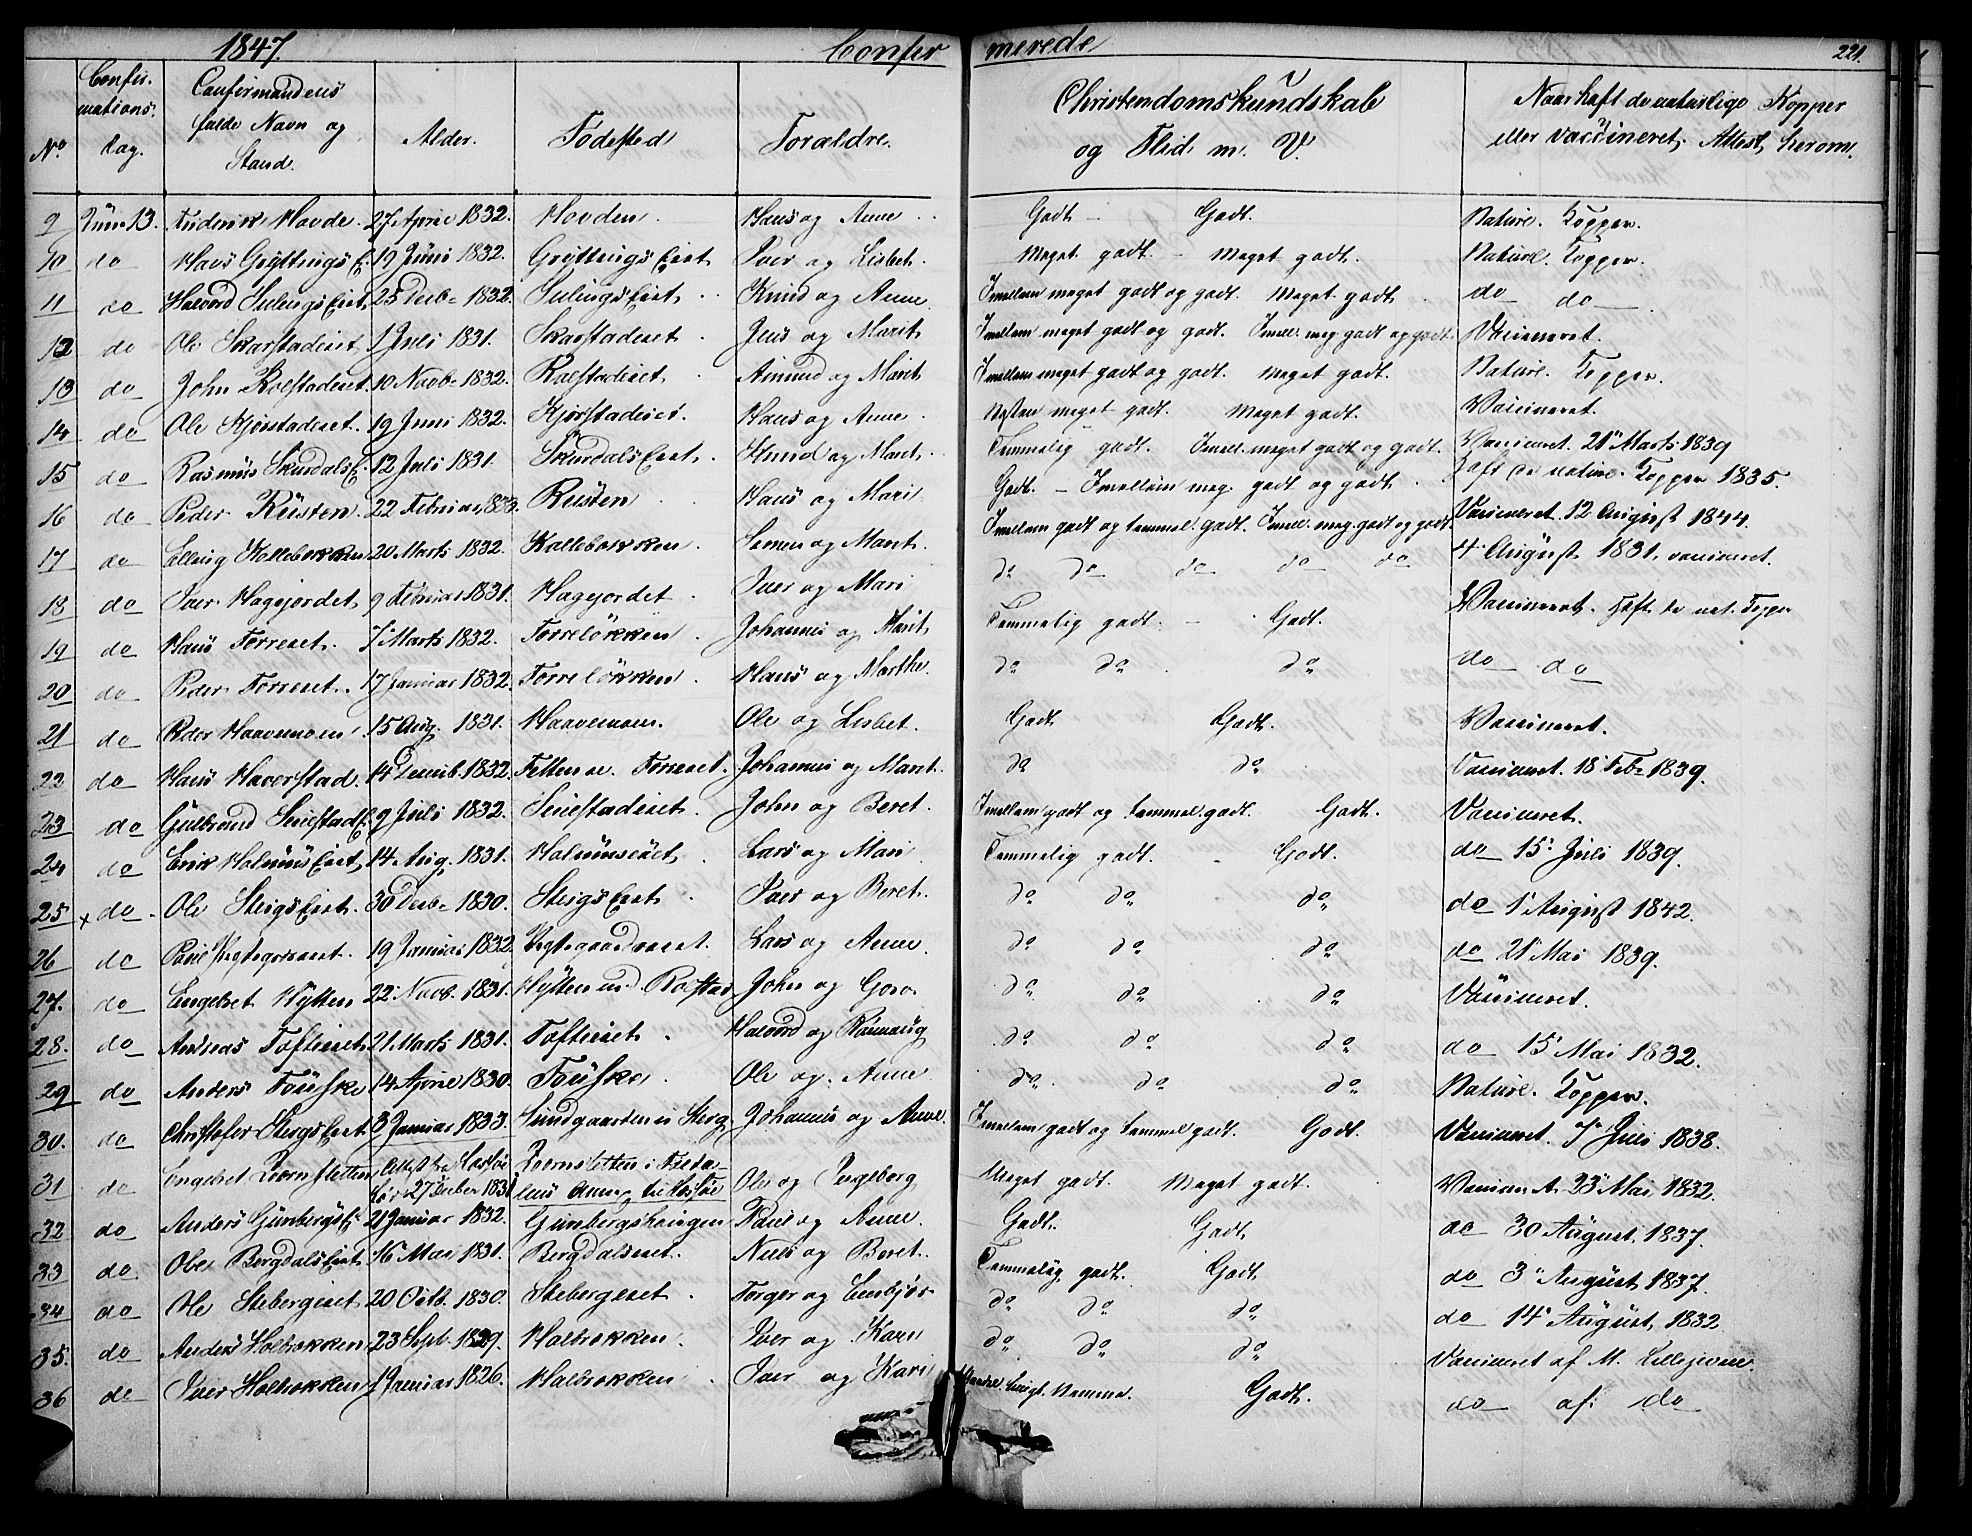 1847. Confir merede 221.
No. Confir- mations. dag. Confirmandens fulde Navn og Stand. Alder. Fødested Forældre. Christendomskundskab og Flid m. V. Naar haft de naturlige Kopper eller vaccineret. Attest herom.
9 Juni 13. Fredrik Hovde. 27 April 1832. Hovden. Hans og Anne Godt - Godt. Naturl. Kopper.
10 do Hans Gryttings E. 19 Juni 1832. Gryttings Eiet Iver og Lisbet. Meget godt - Meget godt. Naturl. Kopper.
11 do Halvord Sulings Eiet 25 Decbr 1832. Sulings Eiet Knud og Anne Imellem meget godt og godt. Meget godt do do
12 do Ole Skarstadeiet 1 Juli 1831. Skarstadeiet Jens og Marit Imellem meget godt og godt. Imell. meg. godt og godt. Vaccineret.
13 do John Kolstadeiet 10 Novbr 1832. Kolstadeiet Amund og Marit Imellem meget godt og godt. Meget godt. Naturl. Kopper.
14 do Ole Kjørstadeiet. 19 Juni 1832. Kjørstadeiet. Hans og Anne Næsten meget godt. Meget godt. Vaccineret.
15 do Rasmus Skurdals E. 12 Juli 1831. Skurdals Eiet. og Marit Temmelig godt. Imell. meget godt og godt. Vaccineret. 21 Marts 1839
16 do Peder Rusten. 22 Februar Rusten Hans og Mari Godt. - Imellem meg. godt og godt. Haft de naturl. Kopper 1835.
17 do Elling Kollebakken 20 Marts 1832. Kollebakken. Simen og Marit. Imellem godt og temmel. godt. Imell. meg. godt og godt Vaccineret. 12 August 1844.
18 do Iver Hagejordet 9 Februar 1831. Hagejordet Iver og Mari do do do do do 4 August 1831. vaccineret.
19 do Hans Forreiet. 7 Marts 1832. Forreløkken Johannes og Marit Temmelig godt. - Godt. Vaccineret. Haft de nat. Kopper
20 do Peder Forreiet. 17 Januar 1832. Forreløkken Hans og Marthe. do do do do do
21 do Peder Haavemoen 15 Aug. 1831. Haavemoen. Ole og Lisbet. Godt Godt. Vaccineret.
22 do Hans Haverstad. 14 Decemb. 1832. Forreiet. Johannes og Marit. do do Vaccineret. 18 Febr 1839.
23 do Gulbrand 9 Juli 1832. John og Beret. Imellem godt og temmel. godt. Godt. Vaccineret.
24 do Erik Eiet 14 Aug. 1831. Lars og Mari Temmelig godt. - Godt. do 15 Juli 1839.
25 x do Ole Steigs Eiet. 30 Decbr 1830. Steigs Eiet Iver og Beret. do do do do 1 August 1842.
26 do 19 Januar 1832. Lars og Anne. do do do do 21 Mai 1839.
27. do Engebret Hytten 22. Novb. 1831. Hytten und. Rolstad John og Goro. do do do Vaccineret.
28. do Andreas Tofteeiet 21 Marts 1831. Tofteeiet. Halvord og Rønnaug do do do do 15 Mai 1832.
29 do Anders Fouske 14 April 1830. Fouske Ole og Anne do do do Naturl. Kopper.
30. do Christofer Steigs Eiet. 3 Januar 1833. Johannes og Anne. Imellem godt og temmel. godt. Godt. Vaccineret. 7 Juli 1838.
31 do Engebret 27 Decbr 1831 Ole og Ingeborg Meget godt. Meget godt. 23 Mai 1832.
32 do Anders 21 Januar 1832. Paul og Anne. Godt. Godt do 30 August 1837.
33 do Ole Bergdals Eiet 16 Mai 1831. Bergdalseiet. Niels og Beret. Temmelig godt. Godt. do 3 August 1837.
34 do Ole Stebergeiet 20 Octb. 1830. Stebergeiet Torger og do do do do 14 August 1832
35. do Anders Holbakken 23 Sept. Holbakken. Iver og Kari do do do Vaccineret af M.
36 do Iver Holbakken 1 Januar 1826. Holbakken Iver og Kari Godt. do af do